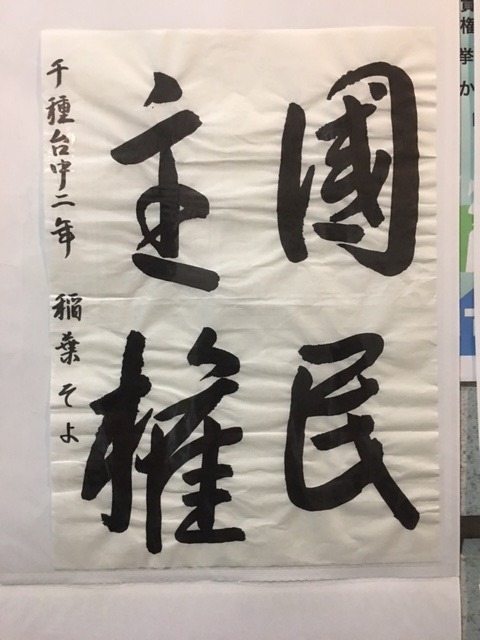 國民
主権
千種台中二年 稲葉そよ
権
挙
か